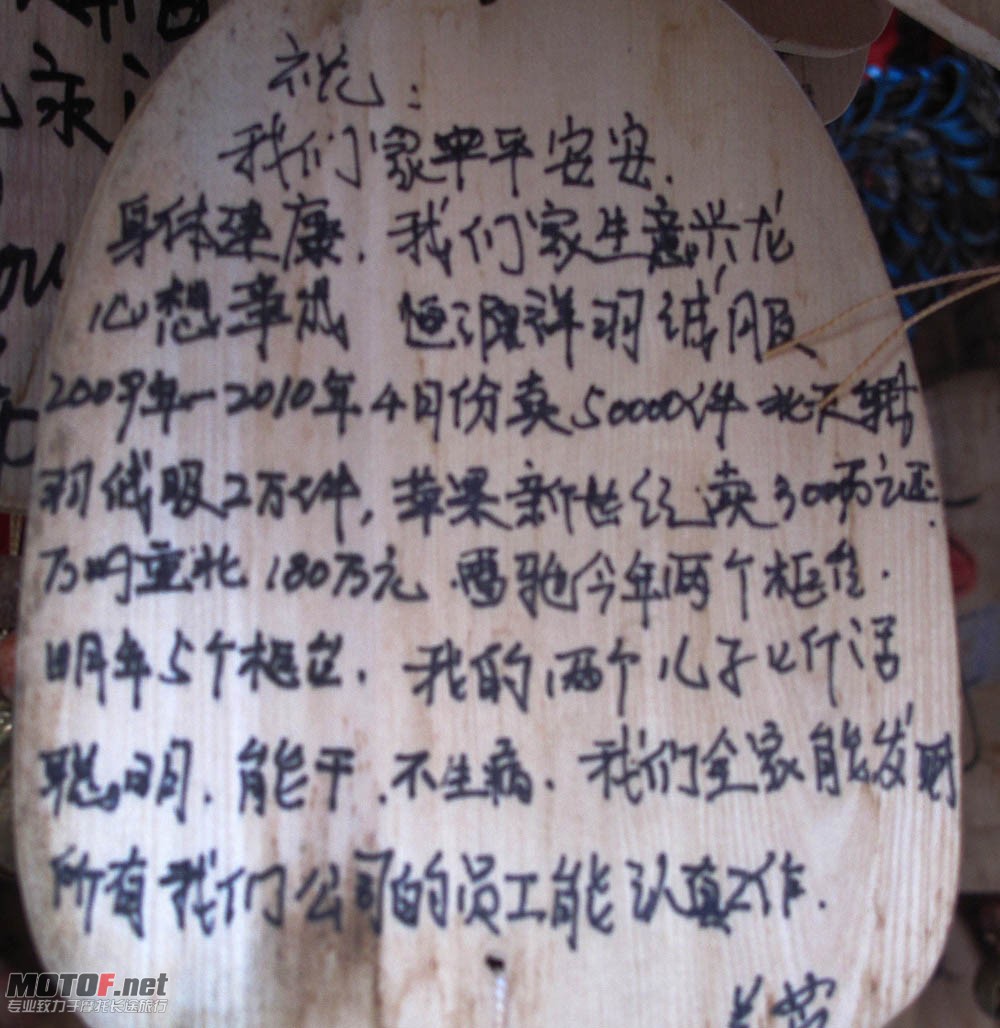 祝:
我们家平平安安.
身体建康.我们家生意兴龙
心想事成 恒源祥羽绒服
2009年-2010年4月份卖50000件
羽绒服2万件,苹果新世纪卖300万元还
180万元 今年两个柜位.
明年5个柜位.我的两个儿子
聪明.能干.不生病.我们全家能发财
所有我们公司的员工能认真工作.
MOTOF.net
专业致力于摩托长途旅行